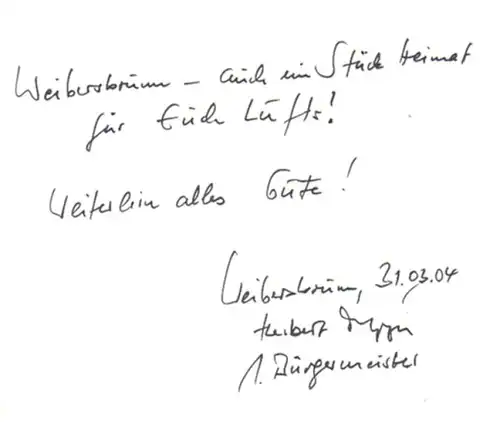 Weibersbrunn – auch ein Stück Heimat
für Euch Lüfts!
Weiterhin alles Gute!
Weibersbrunn, 31.03.04
Herbert
1. Bürgermeister